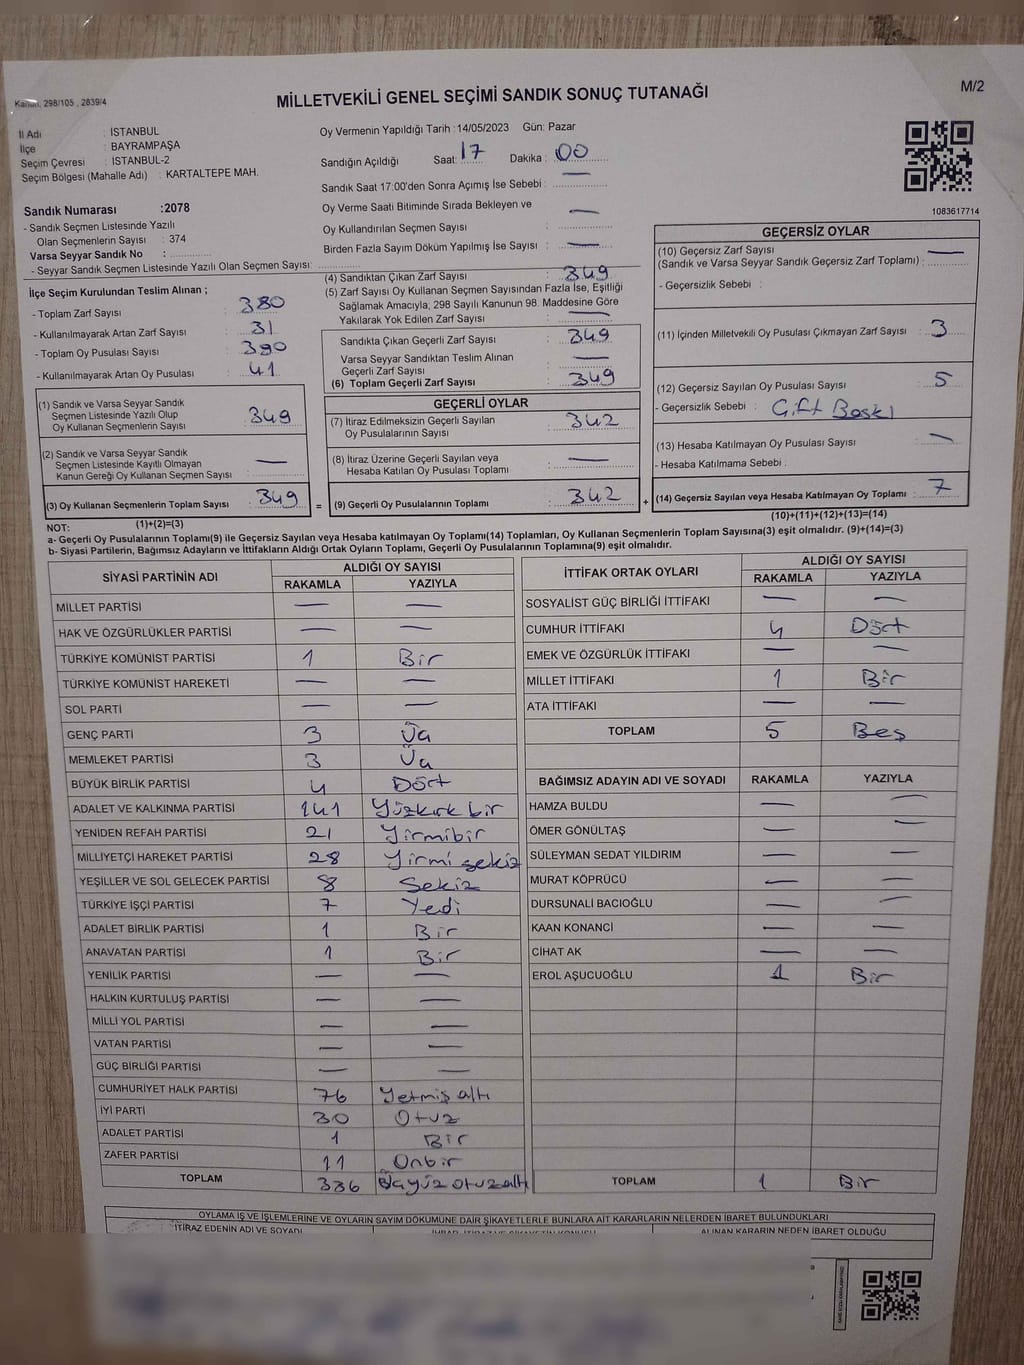 Kanun, 298/105 , 2839/4
MİLLETVEKİLİ GENEL SEÇİMİ SANDIK SONUÇ TUTANAĞI
M/2
İl Adı : İSTANBUL
İlçe : BAYRAMPAŞA
Seçim Çevresi : İSTANBUL-2
Seçim Bölgesi (Mahalle Adı) : KARTALTEPE MAH.
Oy Vermenin Yapıldığı Tarih :14/05/2023 Gün: Pazar
Sandığın Açıldığı Saat: 17 Dakika : 00
Sandık Saat 17:00'den Sonra Açımış İse Sebebi : —
Oy Verme Saati Bitiminde Sırada Bekleyen ve
Oy Kullandırılan Seçmen Sayısı : —
Birden Fazla Sayım Döküm Yapılmış İse Sayısı : —
1083617714
Sandık Numarası :2078
- Sandık Seçmen Listesinde Yazılı
Olan Seçmenlerin Sayısı : 374
Varsa Seyyar Sandık No :
- Seyyar Sandık Seçmen Listesinde Yazılı Olan Seçmen Sayısı:
İlçe Seçim Kurulundan Teslim Alınan ;
- Toplam Zarf Sayısı : 380
- Kullanılmayarak Artan Zarf Sayısı : 31
- Toplam Oy Pusulası Sayısı : 390
- Kullanılmayarak Artan Oy Pusulası : 41
(1) Sandık ve Varsa Seyyar Sandık
Seçmen Listesinde Yazılı Olup
Oy Kullanan Seçmenlerin Sayısı : 349
(2) Sandık ve Varsa Seyyar Sandık
Seçmen Listesinde Kayıtlı Olmayan
Kanun Gereği Oy Kullanan Seçmen Sayısı : —
(3) Oy Kullanan Seçmenlerin Toplam Sayısı : 349 =
(1)+(2)=(3)
(4) Sandıktan Çıkan Zarf Sayısı : 349
(5) Zarf Sayısı Oy Kullanan Seçmen Sayısından Fazla İse, Eşitliği
Sağlamak Amacıyla; 298 Sayılı Kanunun 98. Maddesine Göre
Yakılarak Yok Edilen Zarf Sayısı : —
Sandıkta Çıkan Geçerli Zarf Sayısı : 349
Varsa Seyyar Sandıktan Teslim Alınan
Geçerli Zarf Sayısı : —
(6) Toplam Geçerli Zarf Sayısı : 349
GEÇERLİ OYLAR
(7) İtiraz Edilmeksizin Geçerli Sayılan
Oy Pusulalarının Sayısı : 342
(8) İtiraz Üzerine Geçerli Sayılan veya
Hesaba Katılan Oy Pusulası Toplamı : —
(9) Geçerli Oy Pusulalarının Toplamı : 342 +
GEÇERSİZ OYLAR
(10) Geçersiz Zarf Sayısı —
(Sandık ve Varsa Seyyar Sandık Geçersiz Zarf Toplamı) :
- Geçersizlik Sebebi :
(11) İçinden Milletvekili Oy Pusulası Çıkmayan Zarf Sayısı : 3
(12) Geçersiz Sayılan Oy Pusulası Sayısı : 5
- Geçersizlik Sebebi : Çift Baskı
(13) Hesaba Katılmayan Oy Pusulası Sayısı : —
- Hesaba Katılmama Sebebi :
(14) Geçersiz Sayılan veya Hesaba Katılmayan Oy Toplamı : 7
(10)+(11)+(12)+(13)=(14)
NOT:
a- Geçerli Oy Pusulalarının Toplamı(9) ile Geçersiz Sayılan veya Hesaba Katılmayan Oy Toplamı(14) Toplamları, Oy Kullanan Seçmenlerin Toplam Sayısına(3) eşit olmalıdır. (9)+(14)=(3)
b- Siyasi Partilerin, Bağımsız Adayların ve İttifakların Aldığı Ortak Oyların Toplamı, Geçerli Oy Pusulalarının Toplamına(9) eşit olmalıdır.
SİYASİ PARTİNİN ADI ALDIĞI OY SAYISI
RAKAMLA YAZIYLA
MİLLET PARTİSİ — —
HAK VE ÖZGÜRLÜKLER PARTİSİ — —
TÜRKİYE KOMÜNİST PARTİSİ 1 Bir
TÜRKİYE KOMÜNİST HAREKETİ — —
SOL PARTİ — —
GENÇ PARTİ 3 Üç
MEMLEKET PARTİSİ 3 Üç
BÜYÜK BİRLİK PARTİSİ 4 Dört
ADALET VE KALKINMA PARTİSİ 141 Yüzkırk bir
YENİDEN REFAH PARTİSİ 21 Yirmibir
MİLLİYETÇİ HAREKET PARTİSİ 28 Yirmi sekiz
YEŞİLLER VE SOL GELECEK PARTİSİ 8 Sekiz
TÜRKİYE İŞÇİ PARTİSİ 7 Yedi
ADALET BİRLİK PARTİSİ 1 Bir
ANAVATAN PARTİSİ 1 Bir
YENİLİK PARTİSİ — —
HALKIN KURTULUŞ PARTİSİ — —
MİLLİ YOL PARTİSİ — —
VATAN PARTİSİ — —
GÜÇ BİRLİĞİ PARTİSİ — —
CUMHURİYET HALK PARTİSİ 76 Yetmiş altı
İYİ PARTİ 30 Otuz
ADALET PARTİSİ 1 Bir
ZAFER PARTİSİ 11 Onbir
TOPLAM 336 Üçyüz otuzaltı
İTTİFAK ORTAK OYLARI ALDIĞI OY SAYISI
RAKAMLA YAZIYLA
SOSYALİST GÜÇ BİRLİĞİ İTTİFAKI — —
CUMHUR İTTİFAKI 4 Dört
EMEK VE ÖZGÜRLÜK İTTİFAKI — —
MİLLET İTTİFAKI 1 Bir
ATA İTTİFAKI — —
TOPLAM 5 Beş
BAĞIMSIZ ADAYIN ADI VE SOYADI RAKAMLA YAZIYLA
HAMZA BULDU — —
ÖMER GÖNÜLTAŞ — —
SÜLEYMAN SEDAT YILDIRIM — —
MURAT KÖPRÜCÜ — —
DURSUNALİ BACIOĞLU — —
KAAN KONANCİ — —
CİHAT AK — —
EROL AŞUCUOĞLU 1 Bir
TOPLAM 1 Bir
OYLAMA İŞ VE İŞLEMLERİNE VE OYLARIN SAYIM DÖKÜMÜNE DAİR ŞİKAYETLERLE BUNLARA AİT KARARLARIN NELERDEN İBARET BULUNDUKLARI
İTİRAZ EDENİN ADI VE SOYADI
ALINAN KARARIN NEDEN İBARET OLDUĞU